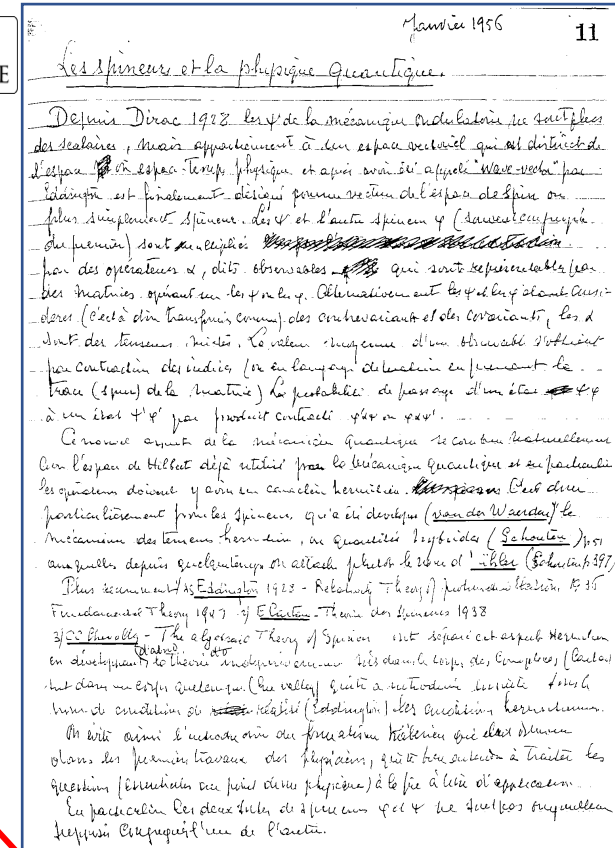 Janvier 1956
11
E
Les spineurs et la physique quantique.
Depuis Dirac 1928 les ψ de la mécanique ondulatoire ne sont plus
des scalaires, mais appartiennent à un espace vectoriel qui est distinct de
l'espace ou espace-temps physique et après avoir été appelé "wave-vector" par
Eddington est finalement désigné comme vecteur de l'espace de spin ou
plus simplement spineur. Les ψ et l'autre spineur φ (souvent conjugué
du premier) sont multipliés
par des opérateurs α, dits observables qui sont représentables par
des matrices opérant sur les ψ ou les φ. Alternativement les ψ et les φ étant consi-
dérés (c'est à dire transformés comme) des contrevariants et des covariants, les α
sont des tenseurs mixtes. La valeur moyenne d'un observable s'obtient
par contraction des indices (ou en langage de matrice en prenant la
trace (spur) de la matrice) La probabilité de passage d'un état ψφ
à un état ψ'φ' par produit contracté φ'αψ ou φαψ'.
Ce nouvel aspect de la mécanique quantique se combine naturellement
avec l'espace de Hilbert déjà utilisé pour la mécanique quantique et en particulier
les opérateurs doivent y avoir un caractère hermitien. C'est donc
particulièrement pour les spineurs, qu'a été développé (van der Waerden) le
mécanisme des tenseurs hermitiens, ou quantités hybrides (Schouten) p51
auxquelles depuis quelque temps on attache plutôt le nom d' (Schouten p397)
Plus récemment Eddington 1928 - Relativity Theory of protons and electrons, 1936
Fundamental Theory 1947 2) E Cartan - Théorie des spineurs 1938
3) CC Chevalley - The algebraic Theory of Spinors ont séparé cet aspect Hermitien
en développant d'abord la théorie dans le corps des Complexes (Cartan)
soit dans un corps quelconque (Chevalley) quitte à introduire ensuite sous le
nom de conditions de réalité (Eddington) les conditions hermitiennes.
On évite ainsi l'introduction du formalisme
dans les premiers travaux des physiciens, quitte bien entendu à traiter les
questions (essentielles au point de vue physique) à la fin à titre d'application.
En particulier les deux sortes de spineurs φ et ψ ne sont pas
supposés conjugués l'un de l'autre.